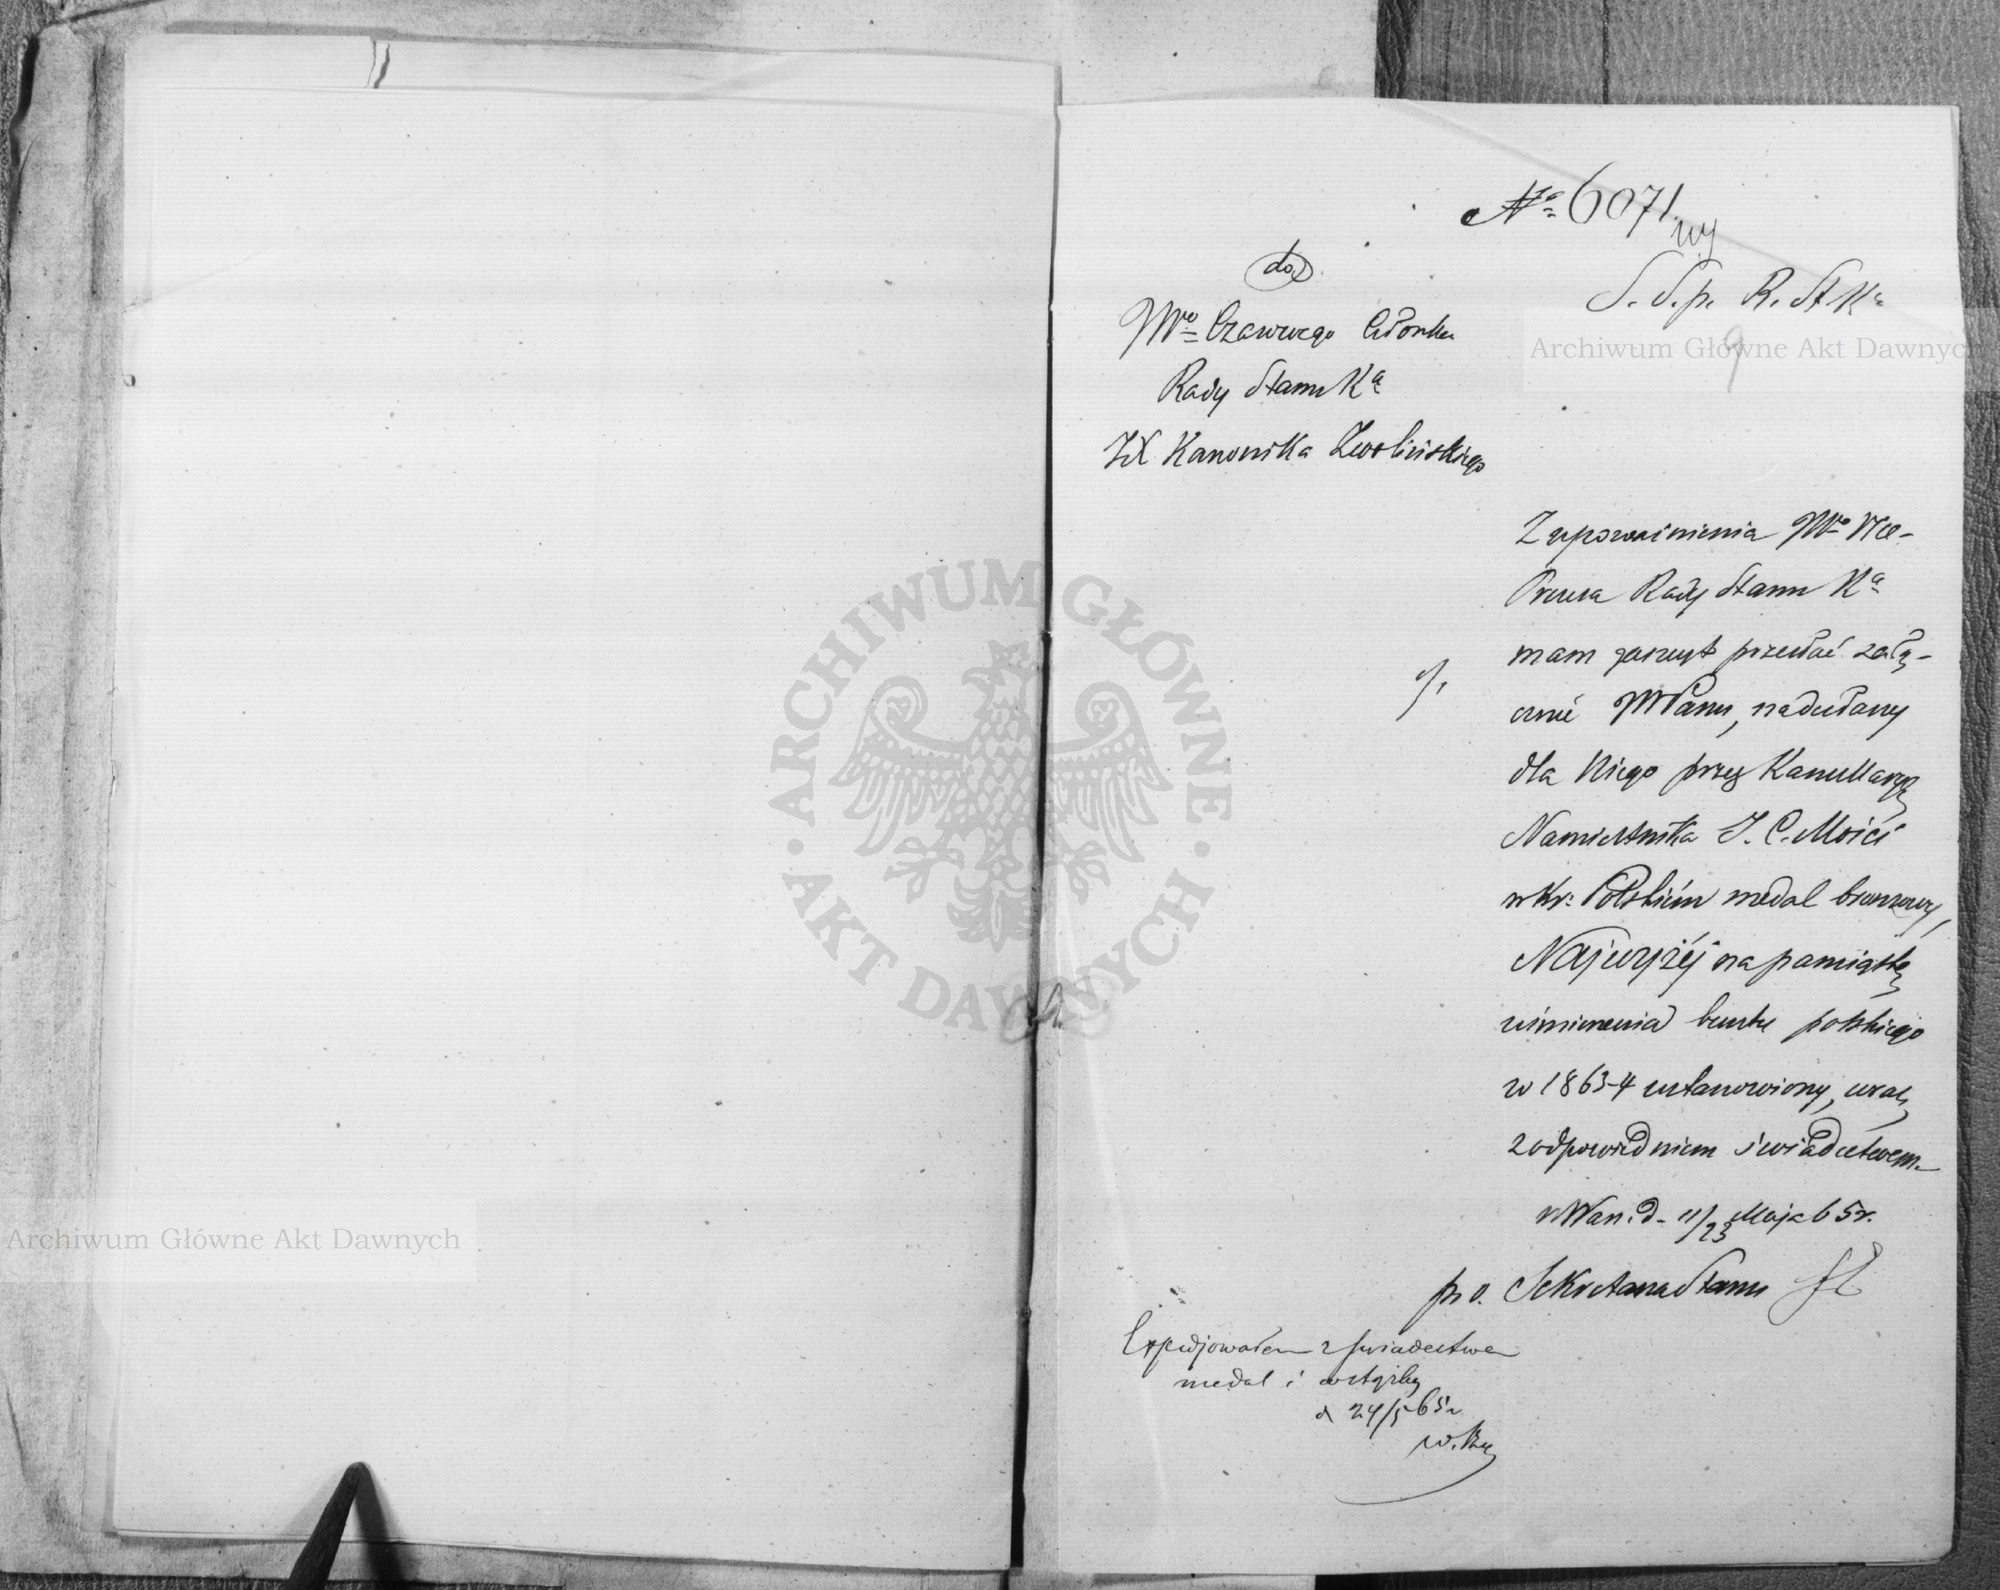 № 6071
S. S. p. R. St K
9
do
JW° Czasowego Członka
Rady Stanu Kª
JX Kanonika Zwolińskiego
Z upoważnienia JW° Vice-
Prezesa Rady Stanu Kª
mam zaszczyt przesłać załą-
cznie JW Panu, nadesłany
dla Niego przez Kancellaryę
Namiestnika J. C. Mości
w Kr: Polskiém medal bronzowy,
Najwyżéj na pamiątkę
uśmierzenia buntu polskiego
w 1863-4 ustanowiony, wraz
z odpowiedniem świadectwem.
w War. d. 11/23 Maja 65 r.
p. o. Sekretarza Stanu
Expedjowałem z świadectwem
medal i wstążkę
d 24/5 65 r
Archiwum Główne Akt Dawnych
Archiwum Główne Akt Dawnych
ARCHIWUM GŁÓWNE
AKT DAWNYCH